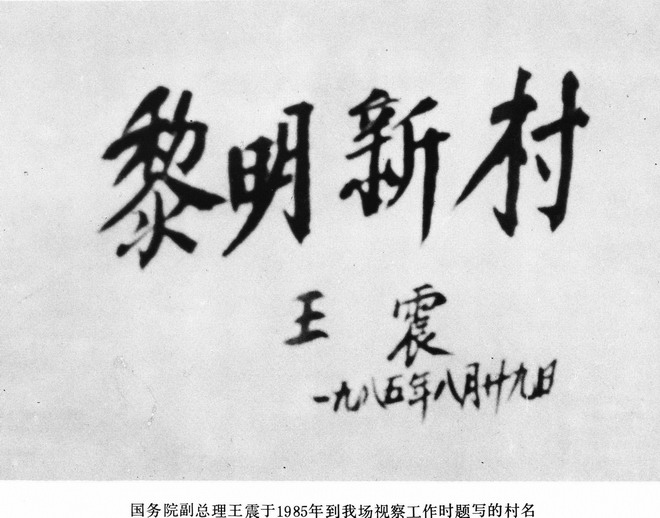 黎明新村
王震
一九八五年八月廿九日
国务院副总理王震于1985年到我场视察工作时题写的村名